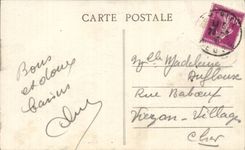 CARTE POSTALE
Bons
et doux
baisers
Mlle Madeleine
Rue Babœuf
Vierzon-Villages
Cher